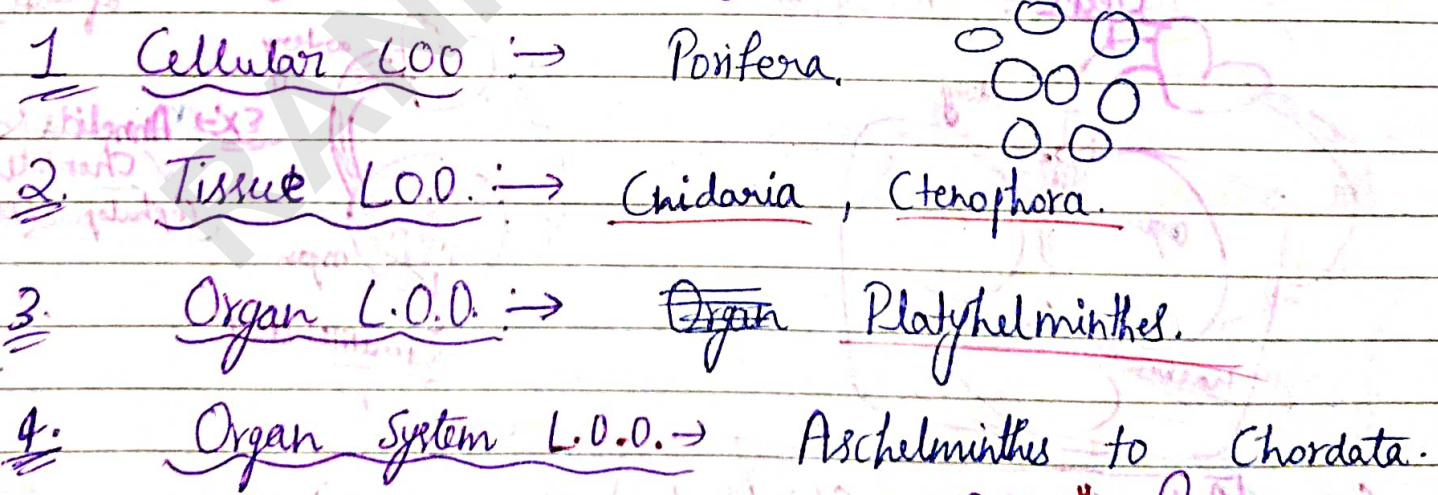 1 Cellular LOO :→ Porifera.
2. Tissue L.O.O. :→ Cnidaria , Ctenophora.
3. Organ L.O.O. :→ Organ Platyhelminthes.
4. Organ System L.O.O.→ Aschelminthes to Chordata.